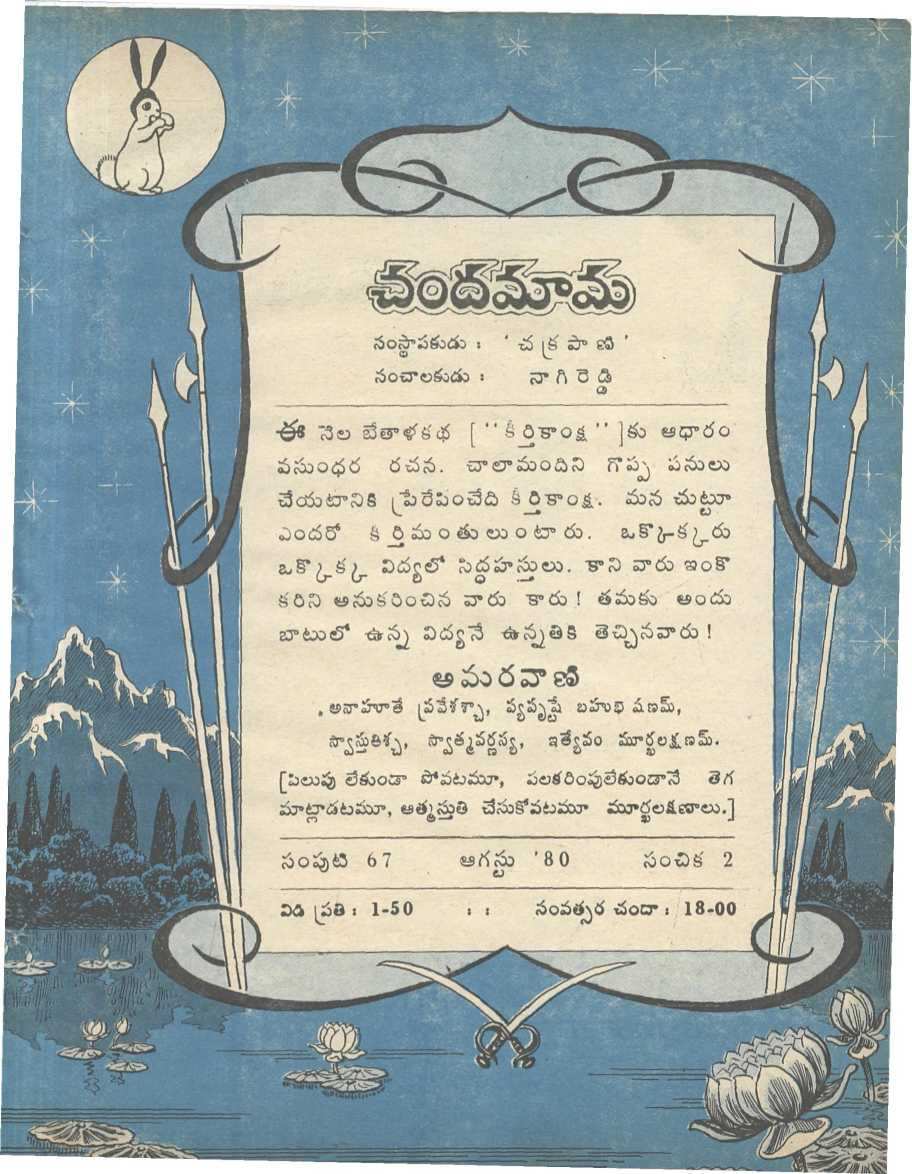 చందమామ
సంస్థాపకుడు : ' చ క్ర పా ణి '
సంచాలకుడు : నా గి రె డ్డి
ఈ నెల బేతాళకథ [ "కీర్తికాంక్ష" ]కు ఆధారం
వసుంధర రచన. చాలామందిని గొప్ప పనులు
చేయటానికి ప్రేరేపించేది కీర్తికాంక్ష. మన చుట్టూ
ఎందరో కీర్తిమంతులుంటారు. ఒక్కొక్కరు
ఒక్కొక్క విద్యలో సిద్ధహస్తులు. కాని వారు ఇంకొ
కరిని అనుకరించిన వారు కారు! తమకు అందు
బాటులో ఉన్న విద్యనే ఉన్నతికి తెచ్చినవారు!
అమరవాణి
అనాహూతే ప్రవేశశ్చా, వ్యపృష్టే బహుభాషణమ్,
స్వాస్తుతిశ్చ, స్వాత్మవర్ణస్య, ఇత్యేవం మూర్ఖలక్షణమ్.
[పిలుపు లేకుండా పోవటమూ, పలకరింపులేకుండానే తెగ
మాట్లాడటమూ, ఆత్మస్తుతి చేసుకోవటమూ మూర్ఖలక్షణాలు.]
సంపుటి 67 ఆగస్టు '80 సంచిక 2
విడి ప్రతి : 1-50 : : సంవత్సర చందా : 18-00